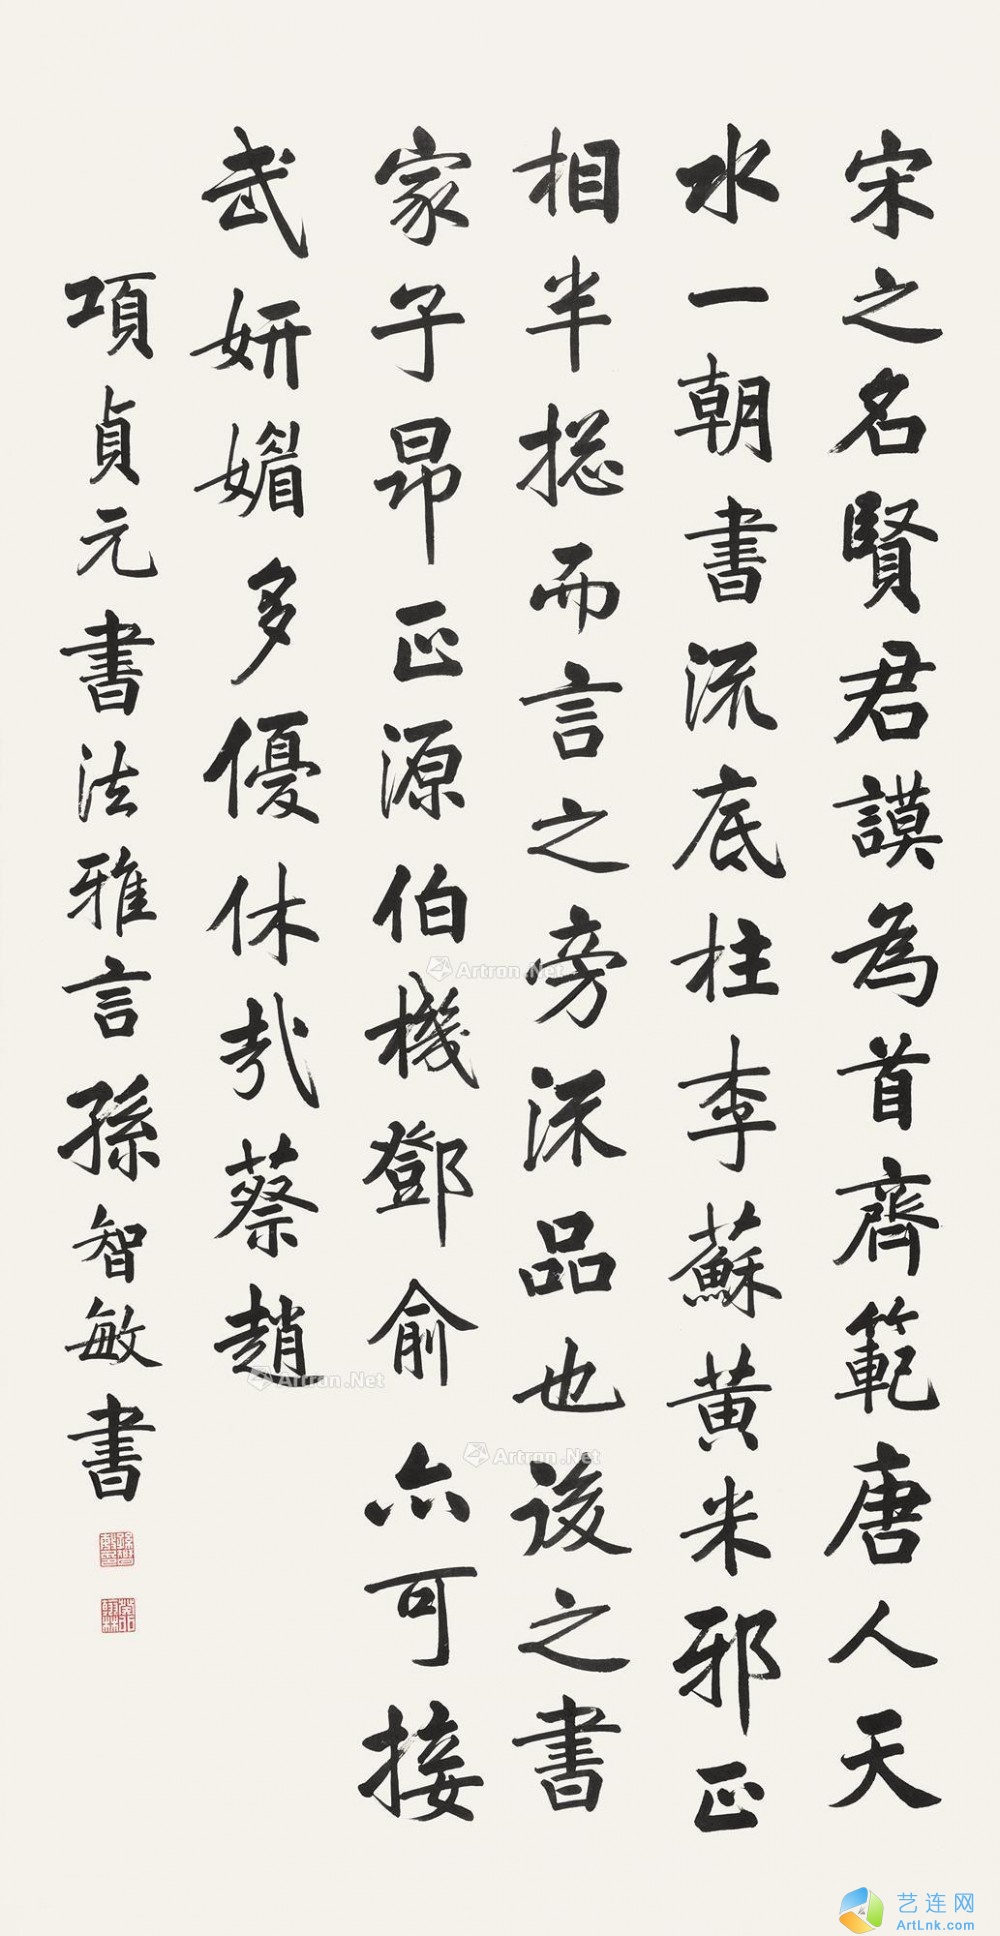 宋之名賢君謨為首齊範唐人天
水一朝書流底柱李蘇黃米邪正
相半捴而言之旁流品也後之書
家子昂正源伯機鄧俞亦可接
武妍媚多優休哉蔡趙
項貞元書法雅言孫智敏書
Artron.Net
Artron.Net
Artron.Net
艺连网
ArtLnk.com